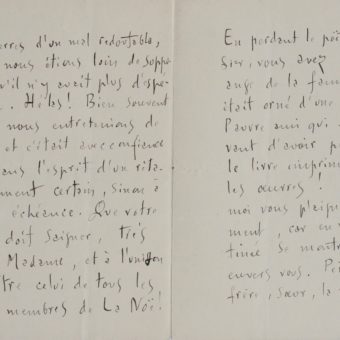 erres d'un mal redoutable,
nous étions loin de suppo
u'il n'y avait plus d'espe
. Hélas! Bien souvent
nous entretenions de
et c'était avec confiance
ans l'esprit d'un réta-
ment certain, sinon à
échéance. Que votre
doit saigner, très
Madame, et à l'unisson
tre celui de tous les
membres de La Noë!
En perdant le poë
Sir, vous avez
ange de la fam
était orné d'une
Pauvre ami qui
vant d'avoir p
le livre imprim
les œuvres!
moi vous pleign
ment, car en
tinée se montr
envers vous.
frère, Sœur, la